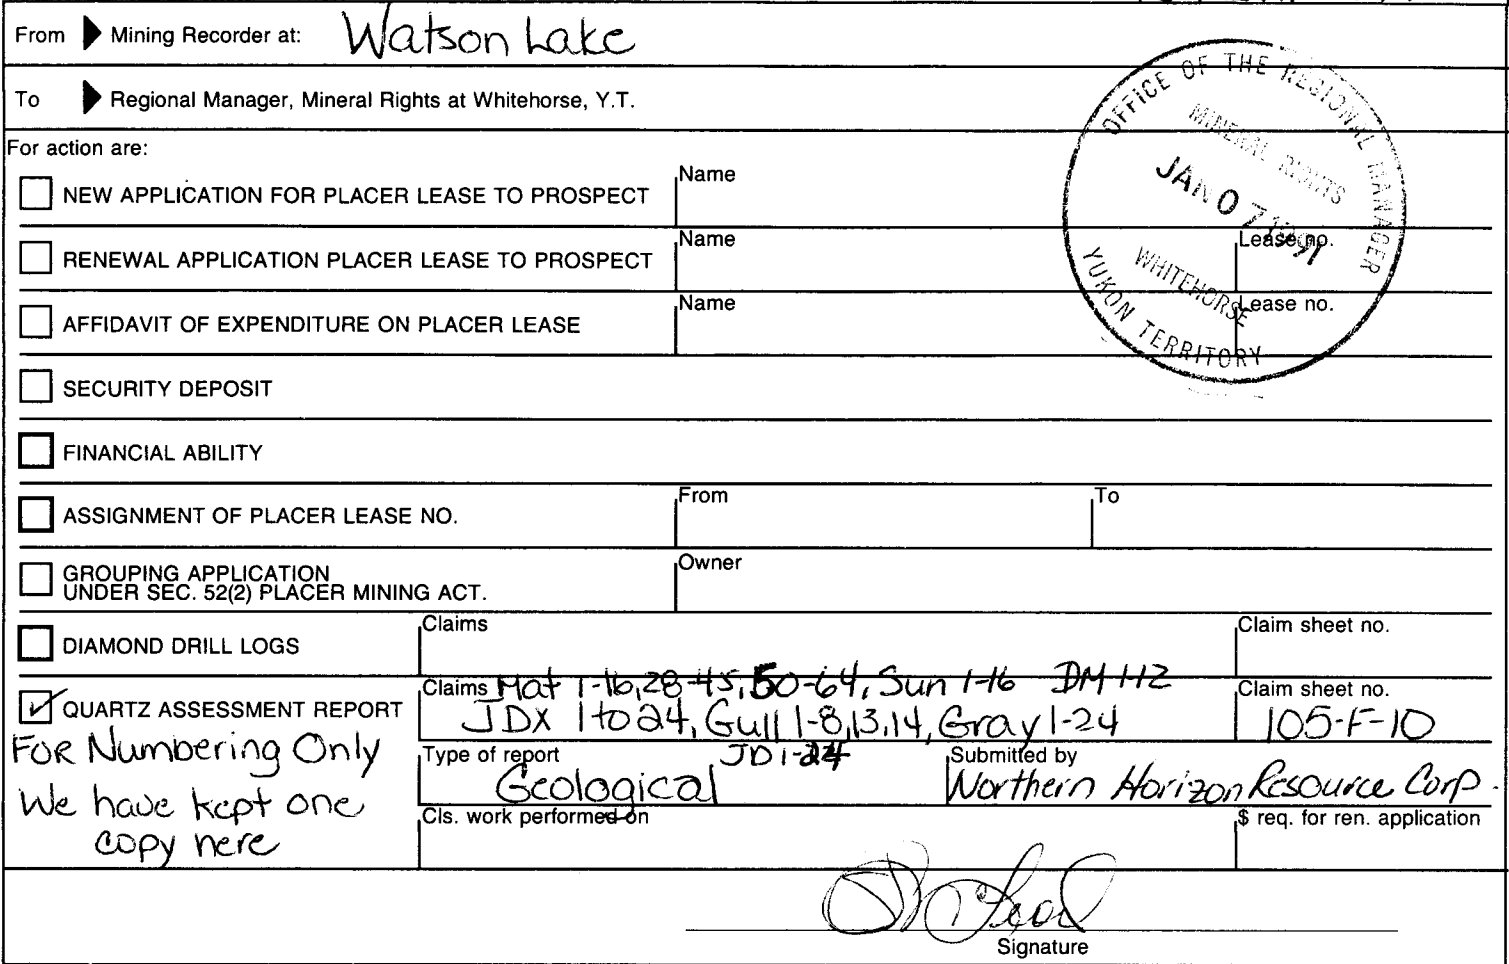 From Mining Recorder at: Watson Lake
To Regional Manager, Mineral Rights at Whitehorse, Y.T.
OFFICE OF THE REGIONAL MANAGER
MINERAL RIGHTS
JAN 07 1991
WHITEHORSE
YUKON TERRITORY
For action are:
NEW APPLICATION FOR PLACER LEASE TO PROSPECT Name
RENEWAL APPLICATION PLACER LEASE TO PROSPECT Name Lease no.
AFFIDAVIT OF EXPENDITURE ON PLACER LEASE Name Lease no.
SECURITY DEPOSIT
FINANCIAL ABILITY
ASSIGNMENT OF PLACER LEASE NO. From To
GROUPING APPLICATION Owner
UNDER SEC. 52(2) PLACER MINING ACT.
DIAMOND DRILL LOGS Claims Claim sheet no.
QUARTZ ASSESSMENT REPORT Claims Mat 1-16, 28-45, 50-64, Sun 1-16 DM 1-12 Claim sheet no.
JDX 1 to 24, Gull 1-8, 13, 14, Gray 1-24 105-F-10
JD 1-24
FOR Numbering Only
We have kept one
copy here
Type of report Geological
Submitted by Northern Horizon Resource Corp.
Cls. work performed on $ req. for ren. application
Signature